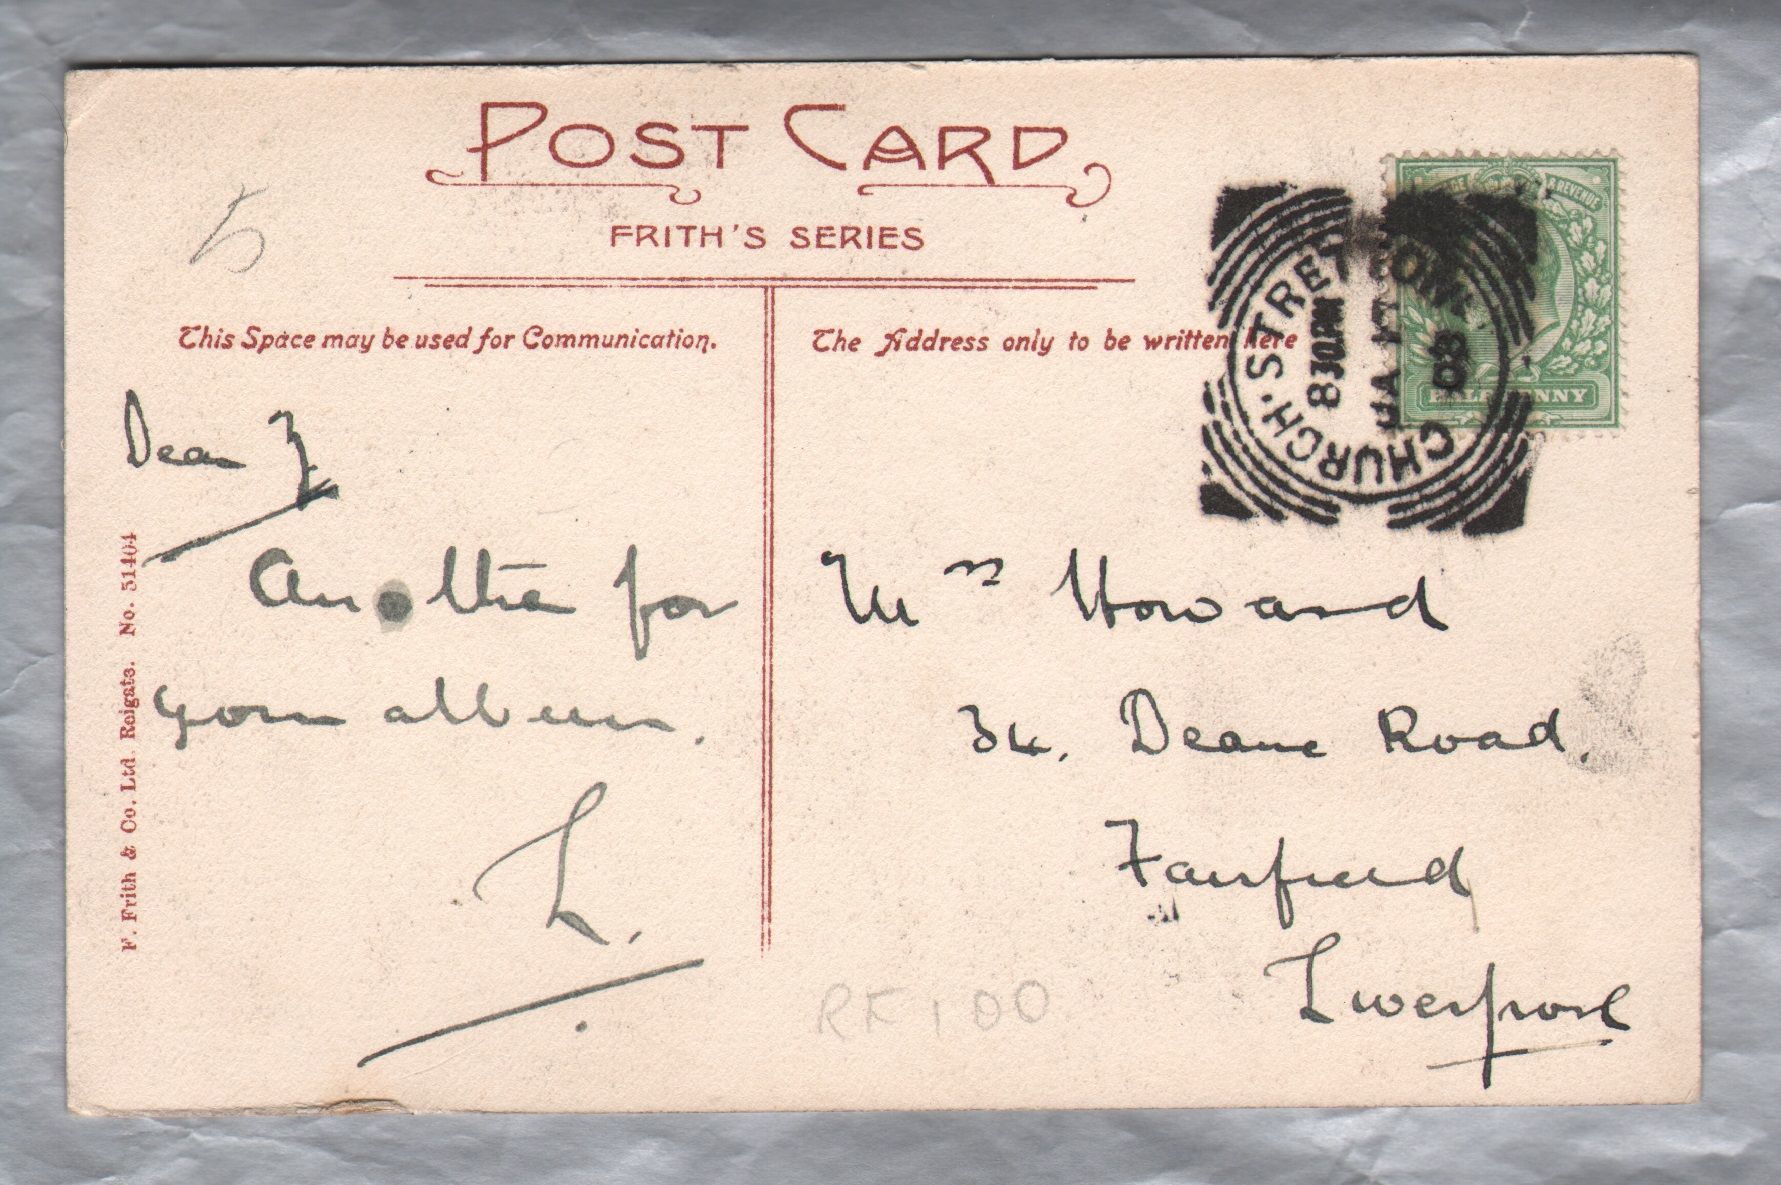 POST CARD
FRITH'S SERIES
This Space may be used for Communication.
The Address only to be written here
5
Dear
Another for
your album.
L.
F. Frith & Co. Ltd. Reigate. No. 51404
POSTAGE & REVENUE
HALFPENNY
CHURCH. STRETTON.
8 30 PM
JA 17
08
Mrs Howard
34, Deane Road.
Fairfield
Liverpool
RF 1 00